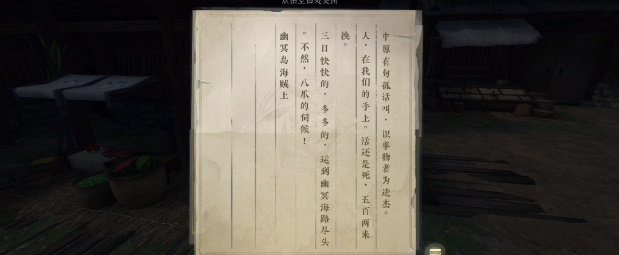 点击空白处关闭
中愿有句孤话叫，识事物者为进杰。
人，在我们的手上。活还是死，五百两来
换。
三日快快的，多多的，运到幽冥海路尽头
。不然，八爪的伺候！
幽冥岛海贼上